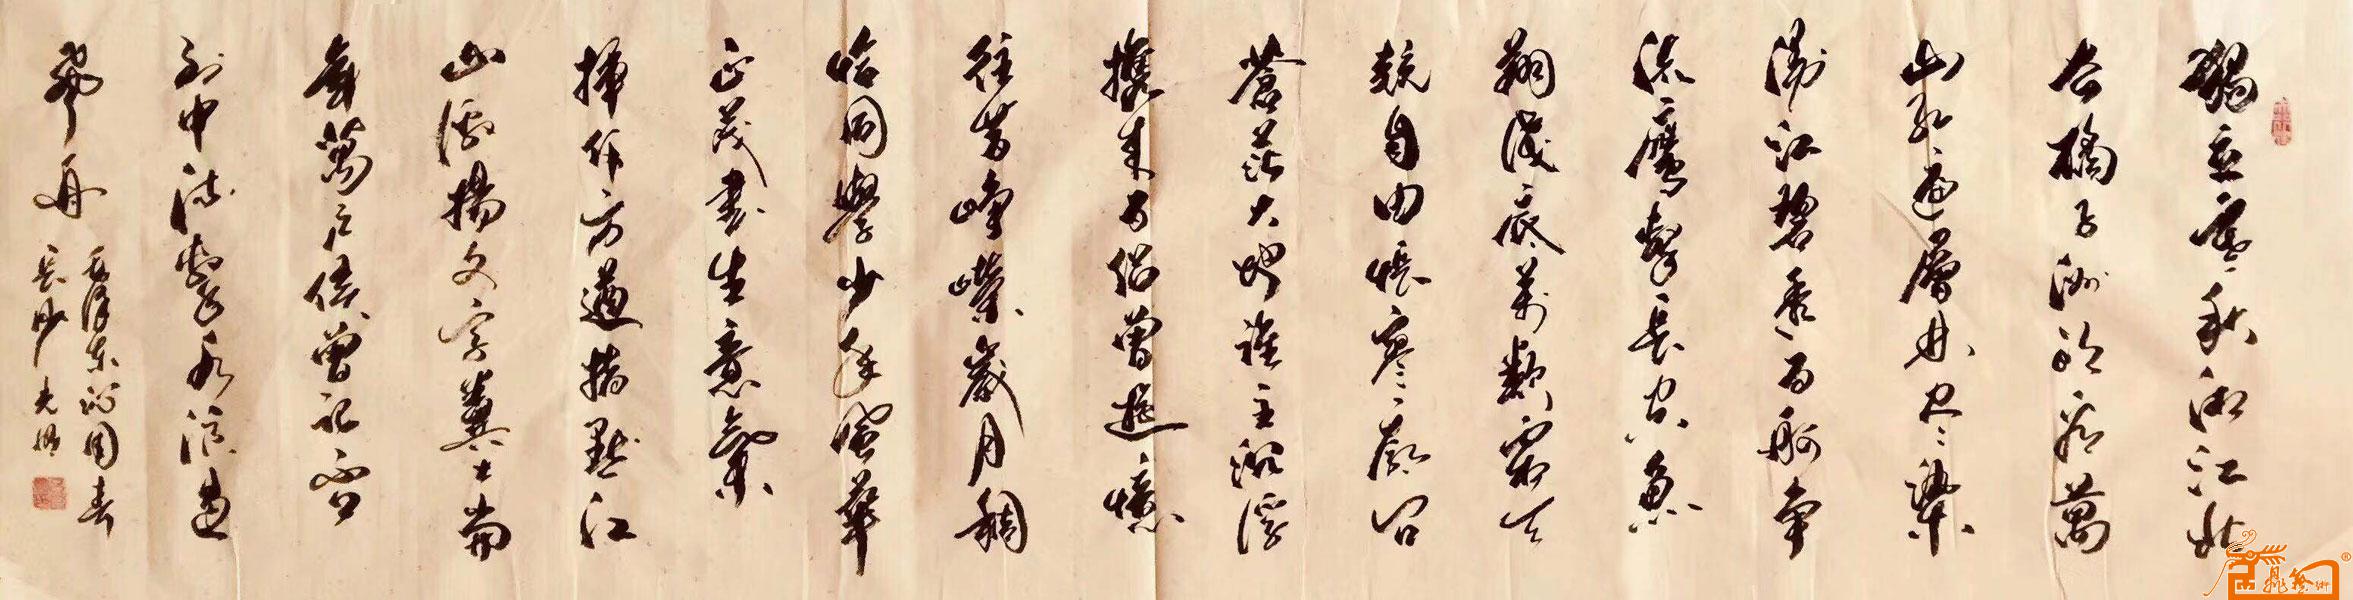 獨立寒秋湘江北
去橘子洲頭看萬
山紅遍層林尽染
漫江碧透百舸争
流鷹擊長空魚
翔淺底萬類霜天
競自由悵寥廓問
蒼茫大地誰主沉浮
攜來百侣曾遊憶
往昔崢嶸歲月稠
恰同學少年風華
正茂書生意氣
揮斥方遒指點江
山激揚文字糞土當
年萬户侯曾記否
到中流擊水浪遏
飛舟
毛澤東沁園春
長沙